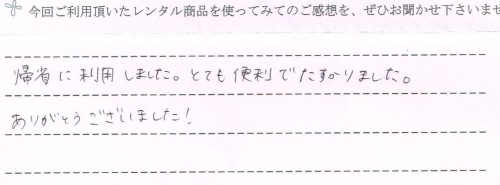 今回ご利用頂いたレンタル商品を使ってみてのご感想を、ぜひお聞かせ下さいませ
帰省に利用しました。とても便利でたすかりました。
ありがとうございました!